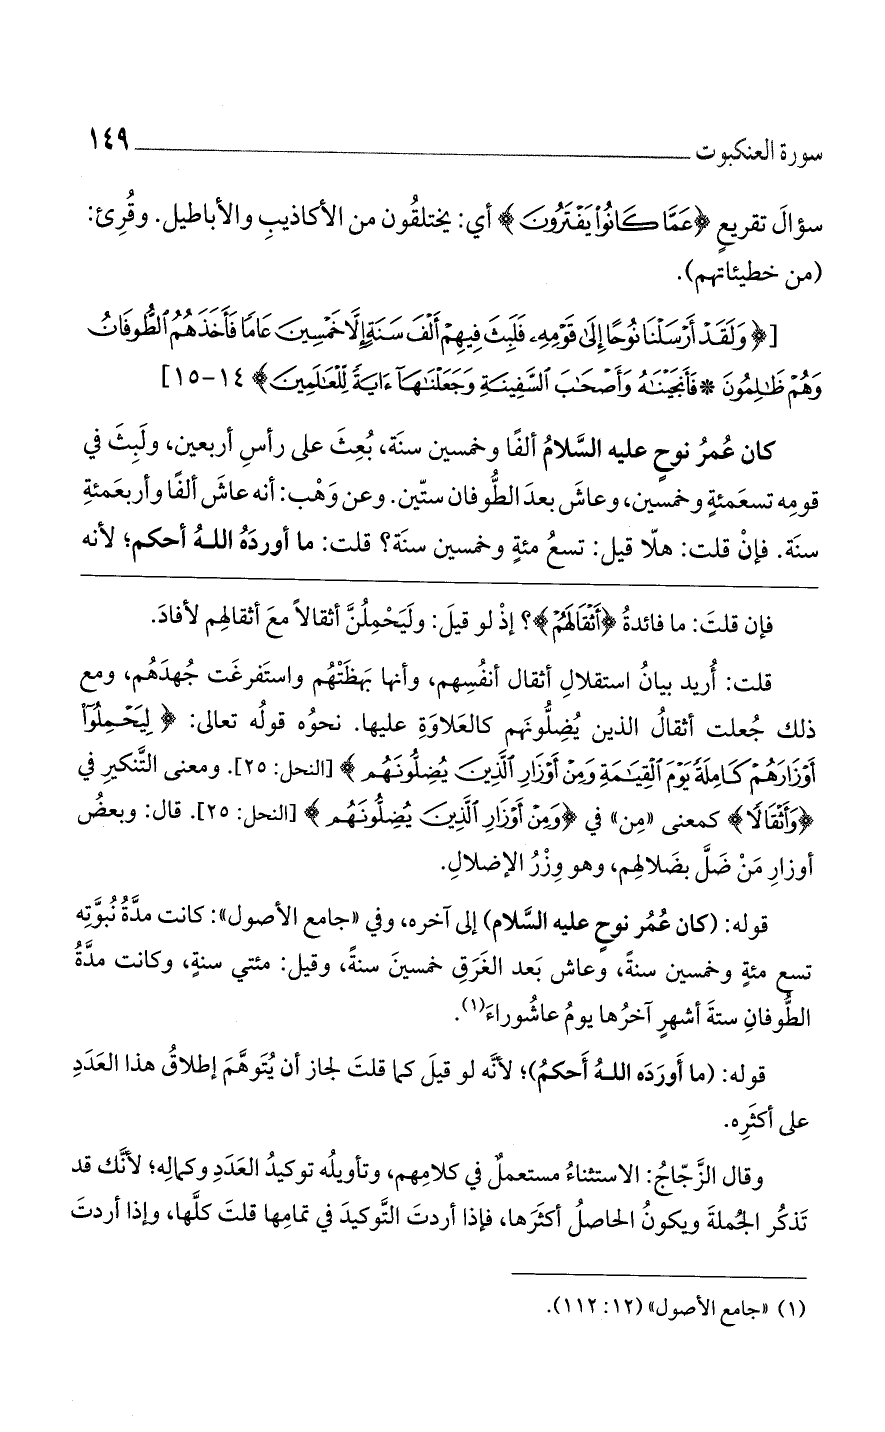 سورة العنكبوت ١٤٩
سؤالَ تقريعٍ ﴿عَمَّا كَانُوا۟ يَفْتَرُونَ﴾ أي: يختلقُون من الأكاذيبِ والأباطيل. وقُرِئ:
(من خطيئاتهم).
[﴿وَلَقَدْ أَرْسَلْنَا نُوحًا إِلَىٰ قَوْمِهِۦ فَلَبِثَ فِيهِمْ أَلْفَ سَنَةٍ إِلَّا خَمْسِينَ عَامًا فَأَخَذَهُمُ ٱلطُّوفَانُ
وَهُمْ ظَـٰلِمُونَ * فَأَنجَيْنَـٰهُ وَأَصْحَـٰبَ ٱلسَّفِينَةِ وَجَعَلْنَـٰهَآ ءَايَةً لِّلْعَـٰلَمِينَ﴾ ١٤-١٥]
كان عُمرُ نوحٍ عليه السَّلامُ ألفًا وخمسين سنَة، بُعِثَ على رأسِ أربعين، ولَبِثَ في
قومِه تسعَمئةٍ وخمسين، وعاش بعدَ الطُّوفان ستّين. وعن وَهْب: أنه عاش ألفًا وأربعَمئةِ
سنَة. فإنْ قلت: هلّا قيل: تسعُ مئةٍ وخمسين سنَة؟ قلت: ما أوردَهُ اللهُ أحكم؛ لأنه
فإن قلتَ: ما فائدةُ ﴿أَثْقَالَهُمْ﴾؟ إذْ لو قيلَ: ولَيَحْمِلُنَّ أثقالاً معَ أثقالهِم لأفادَ.
قلت: أُريد بيانُ استقلالِ أثقال أنفُسِهم، وأنها بَهظَتْهُم واستَفرغَت جُهدَهُم، ومع
ذلك جُعلت أثقالُ الذين يُضِلُّونَهم كالعَلاوَةِ عليها. نحوُه قولُه تعالى: ﴿لِيَحْمِلُوٓا۟
أَوْزَارَهُمْ كَامِلَةً يَوْمَ ٱلْقِيَـٰمَةِ وَمِنْ أَوْزَارِ ٱلَّذِينَ يُضِلُّونَهُم﴾ [النحل: ٢٥]. ومعنى التَّنكيرِ في
﴿وَأَثْقَالًا﴾ كمعنى «مِن» في ﴿وَمِنْ أَوْزَارِ ٱلَّذِينَ يُضِلُّونَهُم﴾ [النحل: ٢٥]. قال: وبعضُ
أوزارِ مَنْ ضَلَّ بضَلالهِم، وهو وِزْرُ الإضلالِ.
قوله: (كان عُمُر نوحٍ عليه السَّلام) إلى آخره، وفي «جامع الأصول»: كانت مدَّةُ نُبوَّتِه
تسع مئةٍ وخمسين سنةً، وعاش بَعد الغَرَقِ خمسينَ سنةً، وقيل: مئتي سنةٍ، وكانت مدَّةُ
الطُّوفانِ ستةَ أشهرٍ آخرُها يومُ عاشُوراءَ(١).
قوله: (ما أَوردَه اللهُ أَحكمُ)؛ لأنَّه لو قيلَ كما قلتَ لجاز أن يُتَوهَّمَ إطلاقُ هذا العَدَدِ
على أكثَرِه.
وقال الزَّجّاجُ: الاستثناءُ مستعملٌ في كلامِهم، وتأويلُه توكيدُ العَدَدِ وكمالِه؛ لأنَّك قد
تَذكُر الجُملةَ ويكونُ الحاصلُ أكثرَها، فإذا أردتَ التَّوكيدَ في تمامِها قلتَ كلَّها، وإذا أردتَ
(١) «جامع الأصول» (١٢: ١١٢).